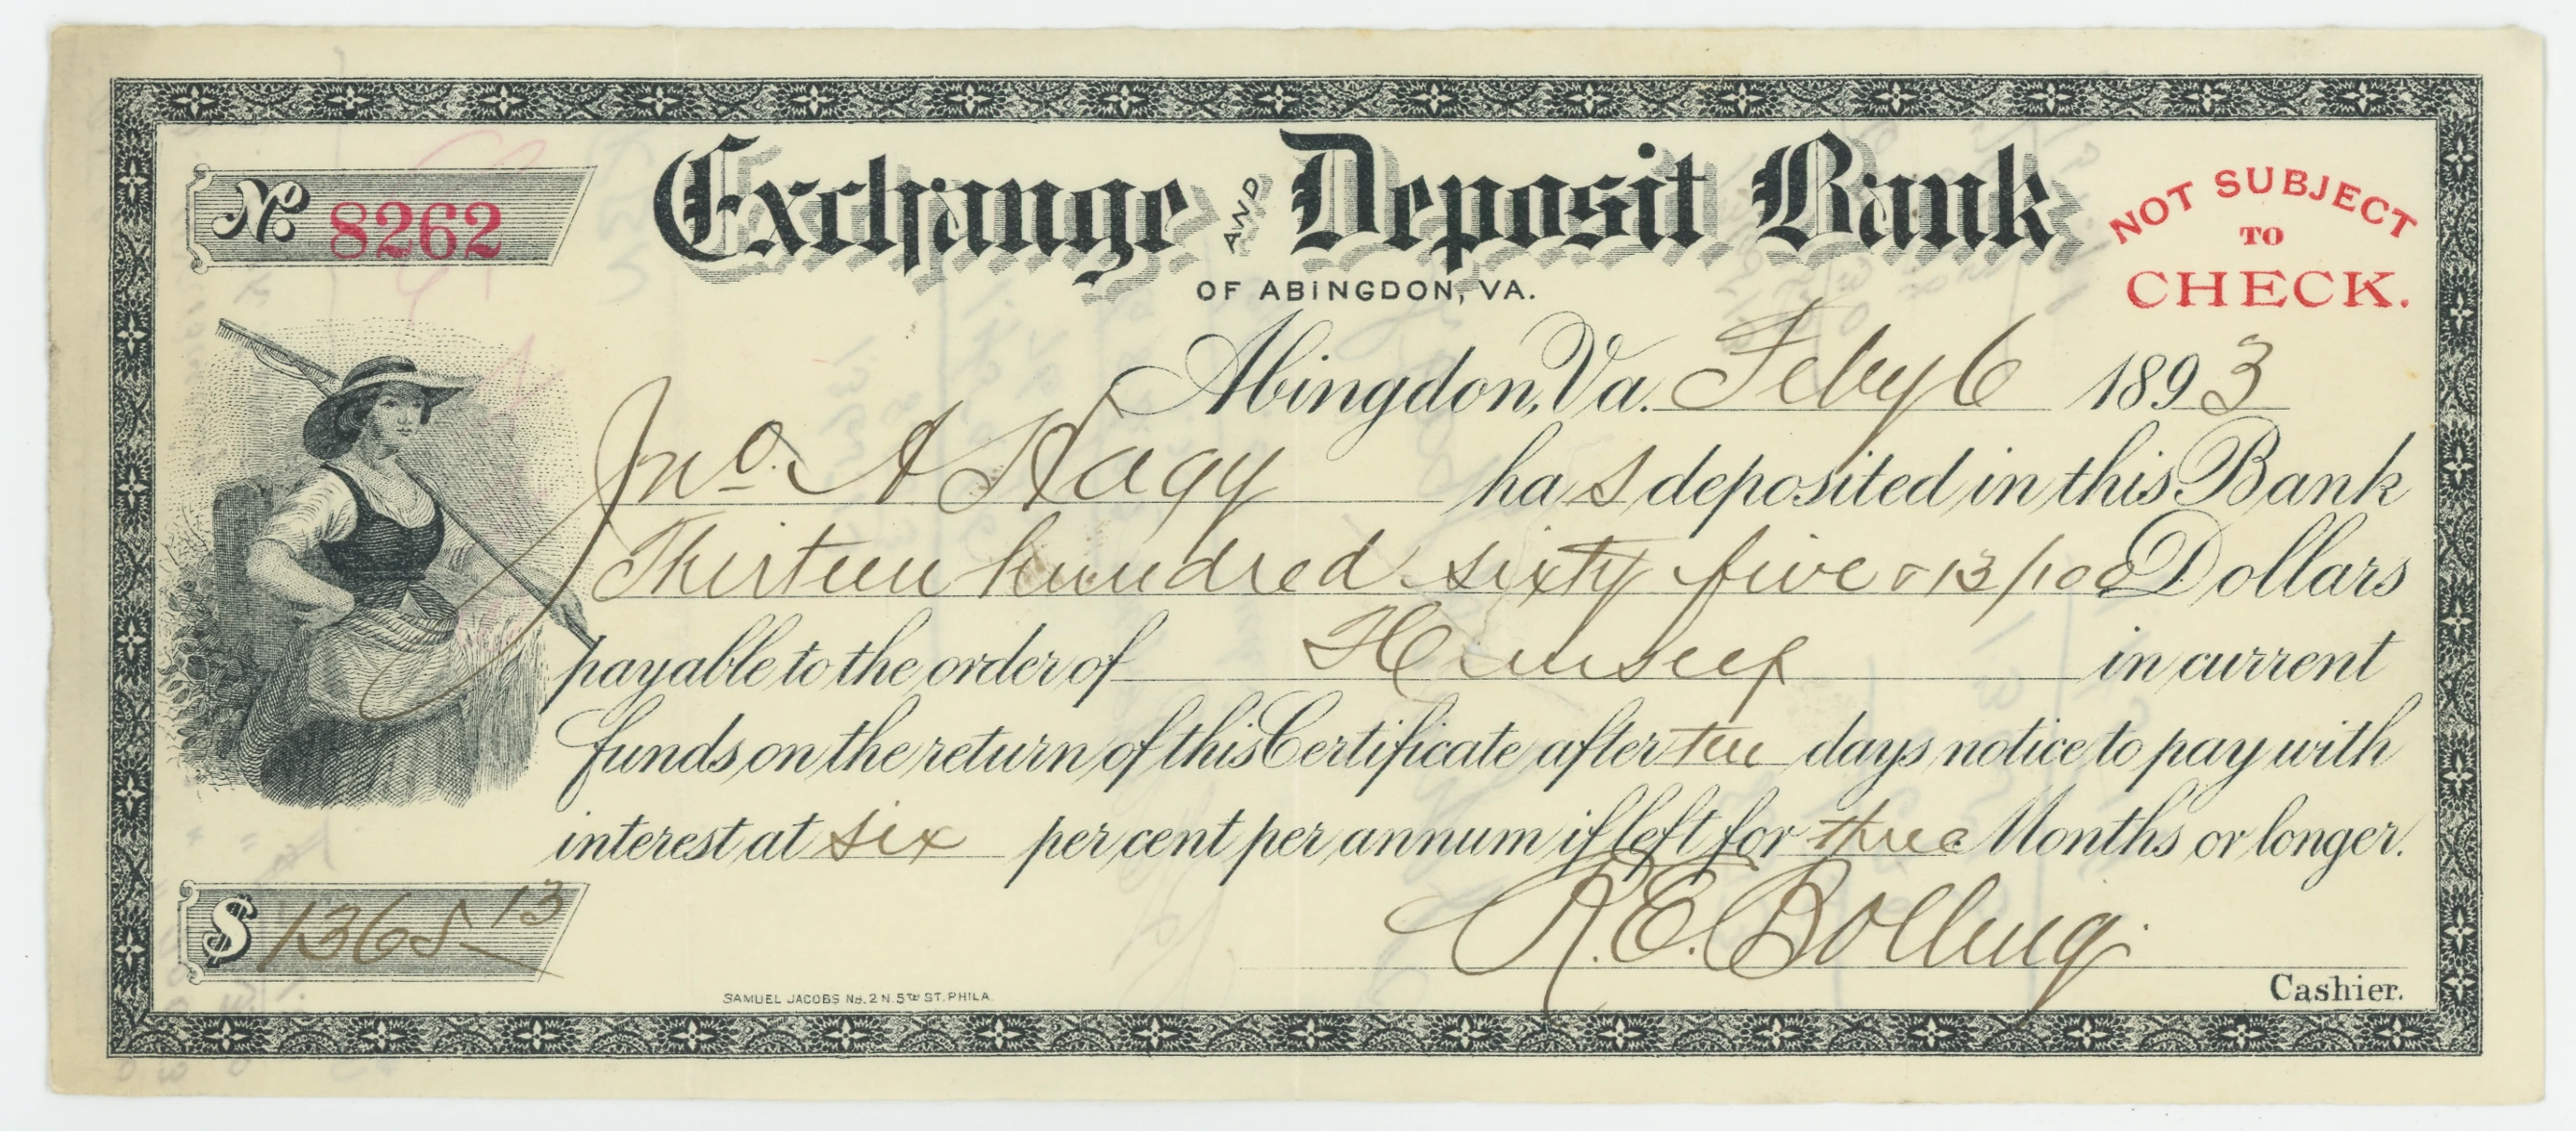 No. 8262
Exchange AND Deposit Bank
OF ABINGDON, VA.
NOT SUBJECT
TO
CHECK.
Abingdon, Va. Feby 6 1893
Jno. A Hagy has deposited in this Bank
Thirteen hundred sixty five & 13/100 Dollars
payable to the order of Himself in current
funds on the return of this Certificate after ten days notice to pay with
interest at six per cent per annum if left for three Months or longer.
$ 1365 13
R. E. Bolling
Cashier.
SAMUEL JACOBS No. 2 N. 5TH ST. PHILA.